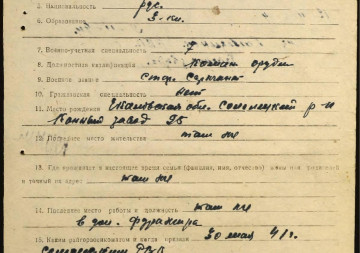 5. Национальность рус.
6. Образование 3-кл.
7. Военно-учетная специальность 7
8. Должностная квалификация
9. Воинское звание стар. Сержант
10. Гражданская специальность нет
11. Место рождения обл. р-н
Конный завод 95
12. Последнее место жительства там же
13. Где проживает в настоящее время семья (фамилия, имя, отчество) жены или родителей
и точный их адрес там же
14. Последнее место работы и должность там же
в дол. Фуражира
15. Каким райгорвоенкоматом и когда призван 30 мая 41 г.
РВК